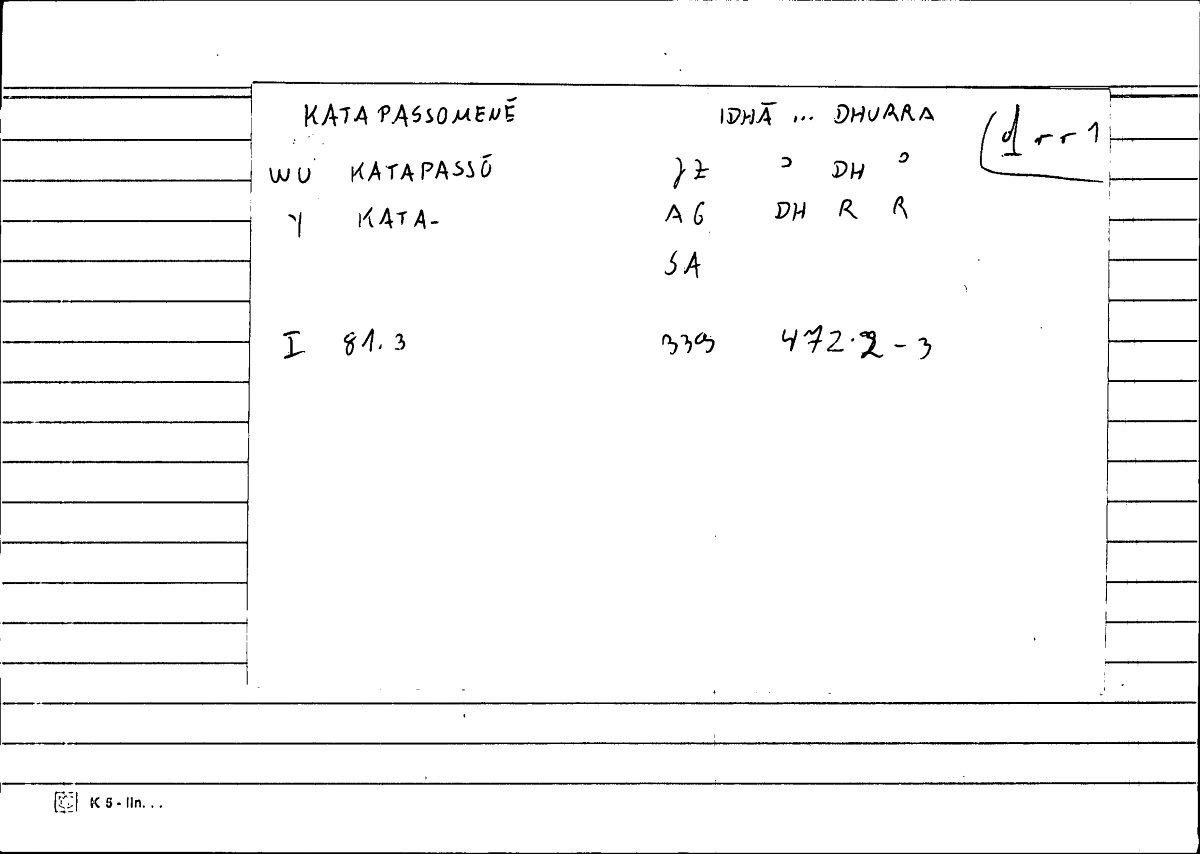 KATAPASSOMENĒ IDHĀ ... DHURRA (d r r 1
WU KATAPASSŌ JZ ɔ DH ɔ
Y KATA- AG DH R R
SA
I 81.3 339 472.2-3
K 5 - lin...